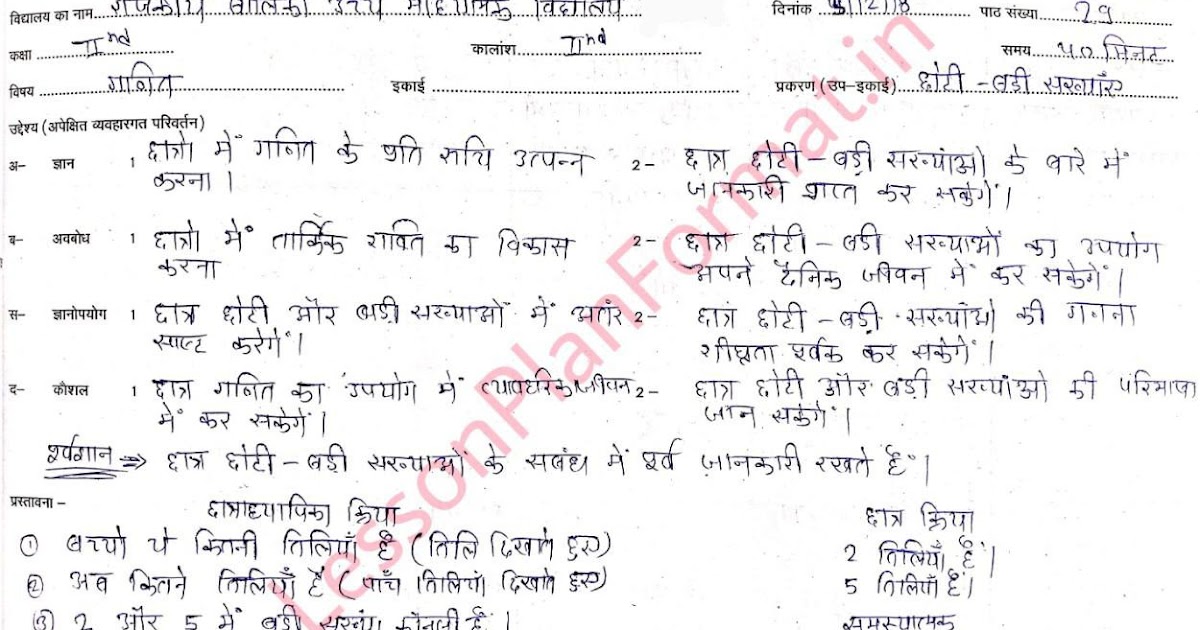 विद्यालय का नाम... राजकीय बालिका उच्च माध्यमिक विद्यालय दिनांक 5/12/18 पाठ संख्या... 29
कक्षा IInd कालांश. IInd समय.... 40 मिनट
विषय गणित इकाई प्रकरण (उप-इकाई).. छोटी - बड़ी सख्याएँ
उद्देश्य (अपेक्षित व्यवहारगत परिवर्तन)
अ- ज्ञान 1 छात्रो में गणित के प्रति रुचि उत्पन्न 2- छात्र छोटी - बड़ी सख्यांओ के बारे में
करना। जानकारी प्राप्त कर सकेगें।
ब- अवबोध 1 छात्रो में तार्किक शक्ति का विकास 2- छात्र छोटी - बड़ी सख्याओं का उपयोग
करना अपने दैनिक जीवन में कर सकेगें।
स- ज्ञानोपयोग 1 छात्र छोटी और बड़ी सख्याओं में अतंर 2- छात्र छोटी - बड़ी सख्यांओ की गणना
स्पष्ट करेगें। शीघ्रता पूर्वक कर सकेगें।
द- कौशल 1 छात्र गणित का उपयोग में व्यावहारिक जीवन 2- छात्र छोटी और बड़ी सख्यांओ की परिभाषा
में कर सकेगें। जान सकेगें।
पूर्वज्ञान => छात्र छोटी - बड़ी सख्याओं के सबंध में पूर्व जानकारी रखते हैं।
प्रस्तावना -
छात्राध्यापिका क्रिया छात्र क्रिया
① बच्चो ये कितनी तिलियाँ है (तिलि दिखाते हुए) 2 तिलियाँ हैं।
② अब कितने तिलियाँ हैं (पाँच तिलियां दिखाते हुए) 5 तिलियाँ हैं।
③ 2 और 5 में बड़ी सख्यां कौनसी है। समस्यात्मक
LessonPlanFormat.in